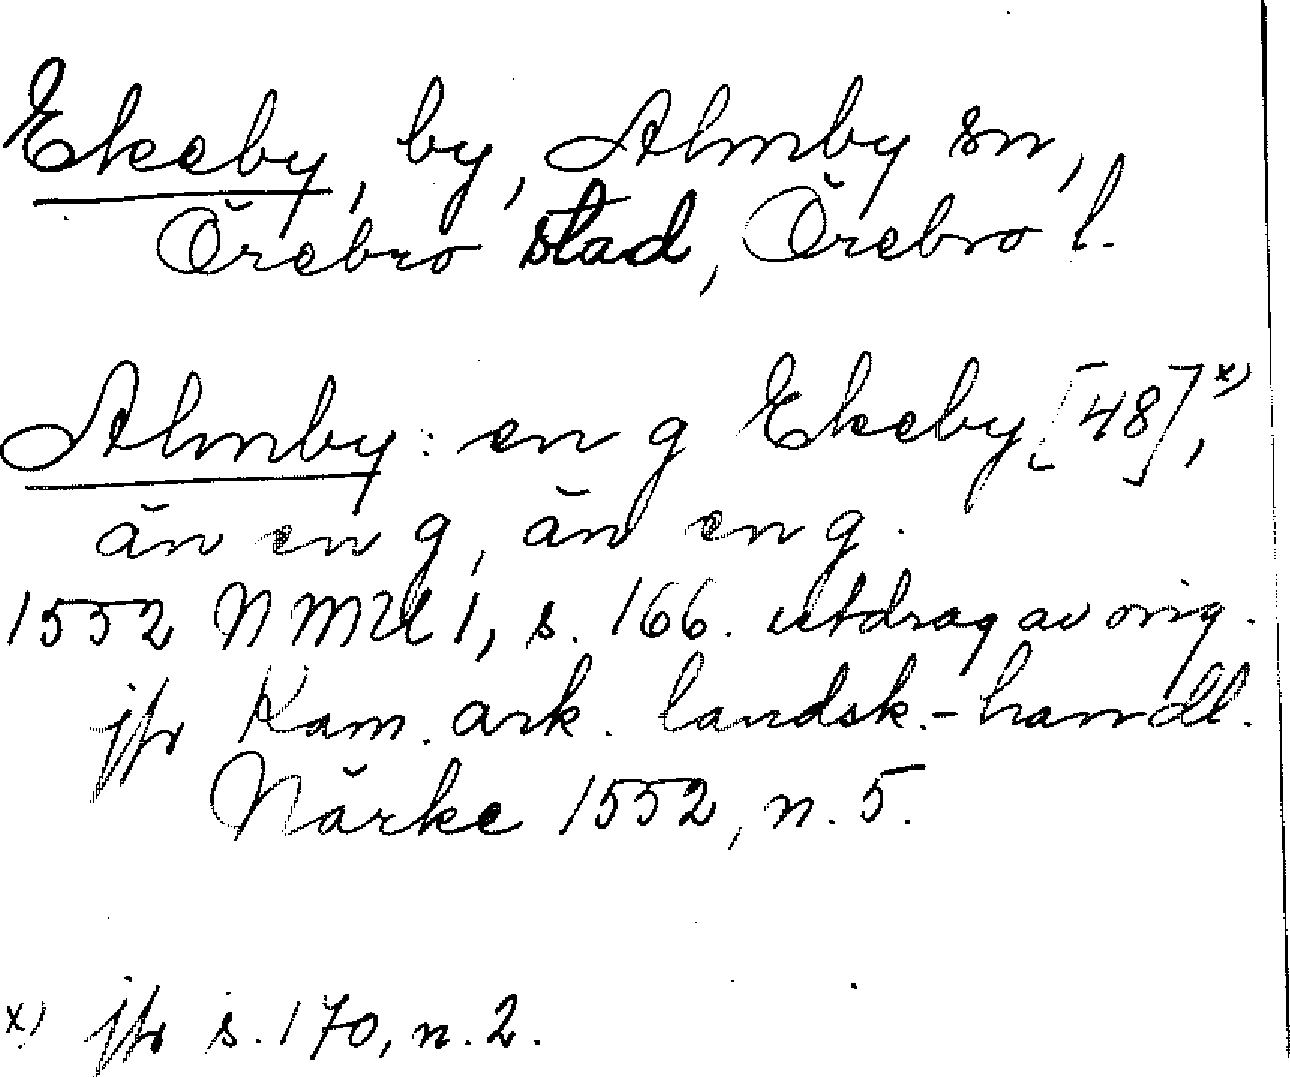 Ekeby, by, Almby sn,
Örebro stad, Örebro l.
Almby: en g Ekeby [48],x)
än en g, än en g.
1552 NMU 1, s. 166. utdrag av orig.
jfr Kam. ark. landsk.-handl.
Närke 1552, n. 5.
x) jfr s. 170, n. 2.